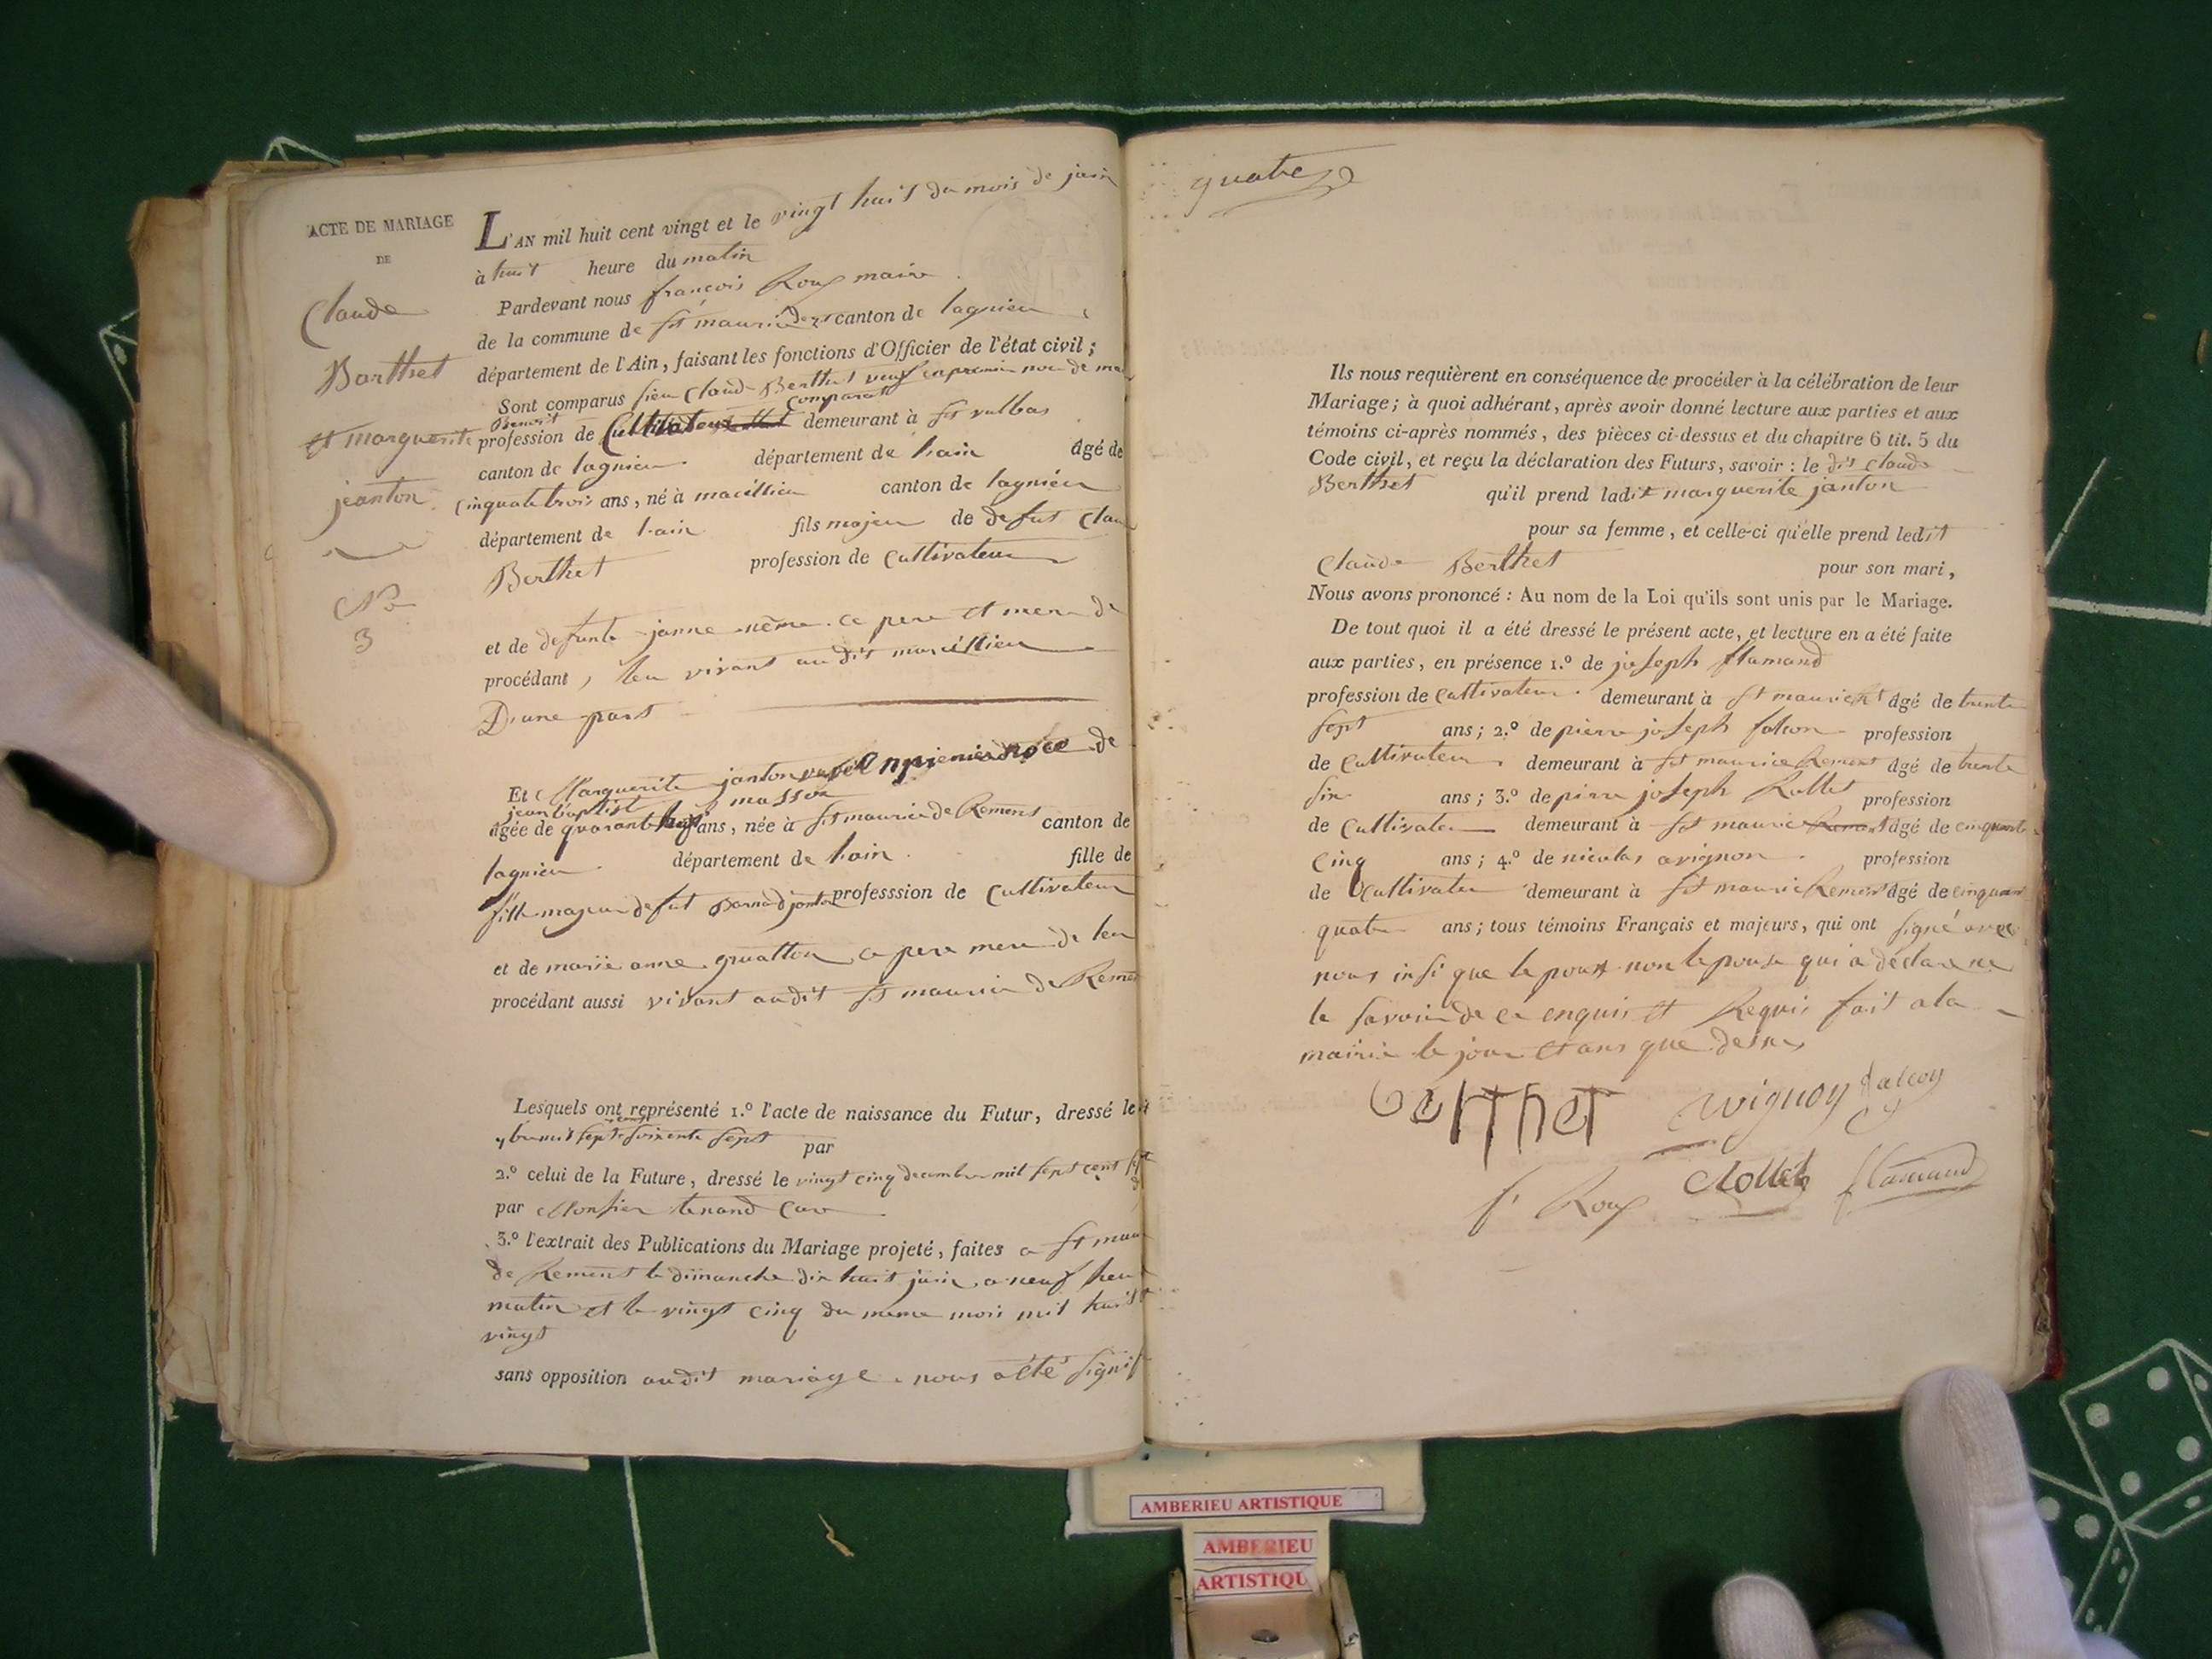 ACTE DE MARIAGE
DE
Claude
Barthet
et marguerite
jeanton
No
3
L'AN mil huit cent vingt et le vingt huit du mois de juin
à huit heure du matin
Pardevant nous françois Roux maire
de la commune de st maurice canton de lagnieu
département de l'Ain, faisant les fonctions d'Officier de l'état civil ;
Sont comparus sieur Claude Berthet veuf en premier noce de
Benoit
profession de Cultivateur demeurant à st vulbas
canton de lagnieu département de lain âgé de
cinquate trois ans, né à marcillieu canton de lagnieu
département de lain fils majeur de defut Clau
Berthet profession de Cultivateur
et de defunte janne ce pere et mere de
procédant, leu vivant audit marcillieu
D'une part
Et Marguerite janton en de
jean baptist masson
âgée de quarante ans, née à st maurice de Remens canton de
lagnieu département de lain fille de
fille majeur defut Barnad janton professsion de Cultivateur
et de marie anne ce pere mere de leu
procédant aussi vivant audit st maurice de Remen
Lesquels ont représenté 1.º l'acte de naissance du Futur, dressé le
mil sept cent soixente sept par
2.º celui de la Future, dressé le vingt cinq decembre mil sept cent
par Monsieur
3.º l'extrait des Publications du Mariage projeté, faites a st mau
de Remens le dimanche dix huit juin a neuf heu
matin et le vingt cinq du meme mois mil huit
vingt
sans opposition audit mariage nous a été signif
quatre
Ils nous requièrent en conséquence de procéder à la célébration de leur
Mariage ; à quoi adhérant, après avoir donné lecture aux parties et aux
témoins ci-après nommés, des pièces ci-dessus et du chapitre 6 tit. 5 du
Code civil, et reçu la déclaration des Futurs, savoir : le dit Claude
Berthet qu'il prend ladit marguerite janton
pour sa femme, et celle-ci qu'elle prend ledit
Claude Berthet pour son mari,
Nous avons prononcé : Au nom de la Loi qu'ils sont unis par le Mariage.
De tout quoi il a été dressé le présent acte, et lecture en a été faite
aux parties, en présence 1.º de joseph flamand
profession de Cultivateur demeurant à st maurice âgé de trente
sept ans ; 2.º de pierre joseph falcon profession
de Cultivateur demeurant à st maurice Remens âgé de trente
six ans ; 3.º de pierre joseph Rollet profession
de Cultivateu demeurant à st maurice âgé de cinquante
cinq ans ; 4.º de nicolas avignon profession
de Cultivateu demeurant à st maurice Remens âgé de cinquan
quatre ans ; tous témoins Français et majeurs, qui ont signé avec
nous insi que lepoux non lepouse qui a déclare ne
le savoir de ce enquis et Requis fait a la
mairie le jour et ans que
berthet avignon falcon
f Roux Rollet flamand
AMBERIEU ARTISTIQUE
AMBERIEU
ARTISTIQU